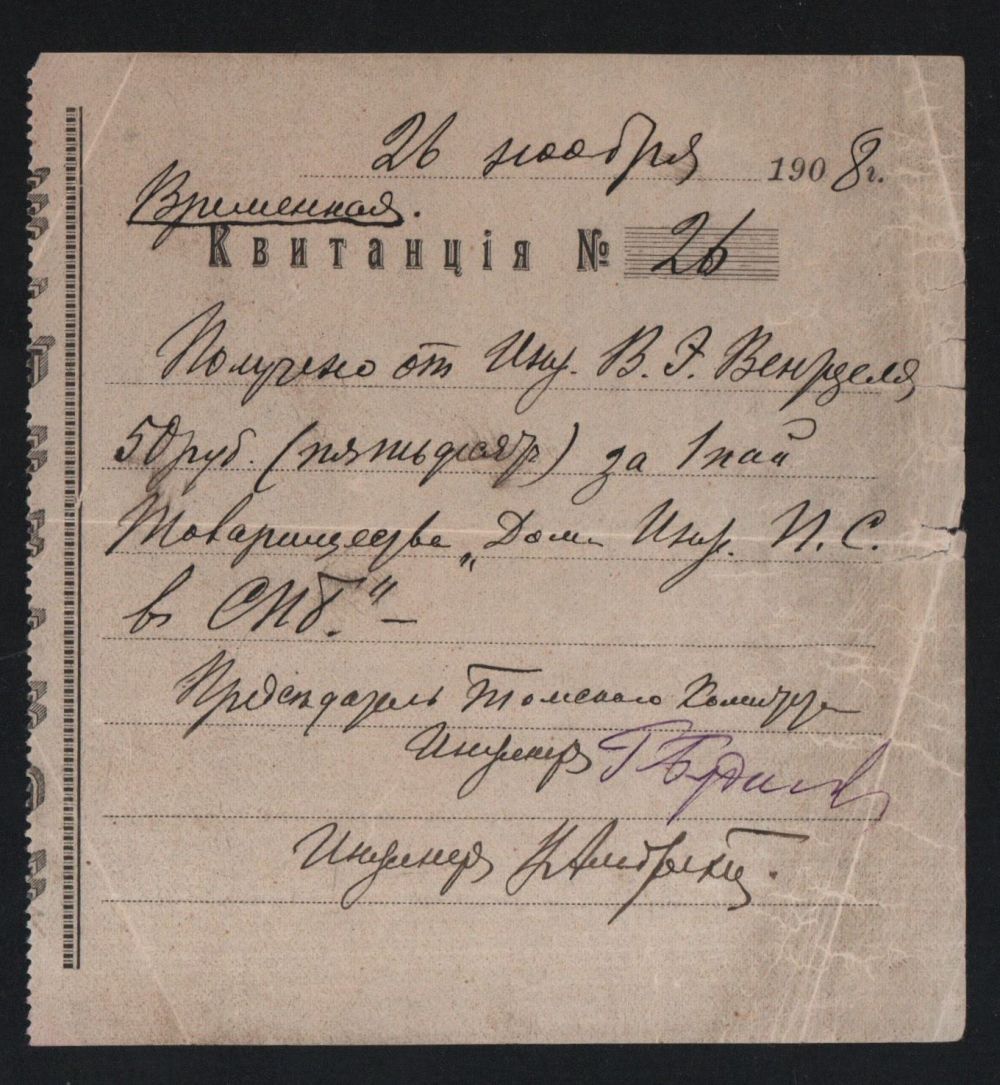 26 ноября 1908 г.
Временная.
Квитанція № 26
Получено от Инж. В. Э. Венцеля
50 руб. (пятьдесят) за 1 пай
Товарищества „Дом Инж. П. С.
в СПб." –
Председатель Томского Комитета
Инженер
Инженер